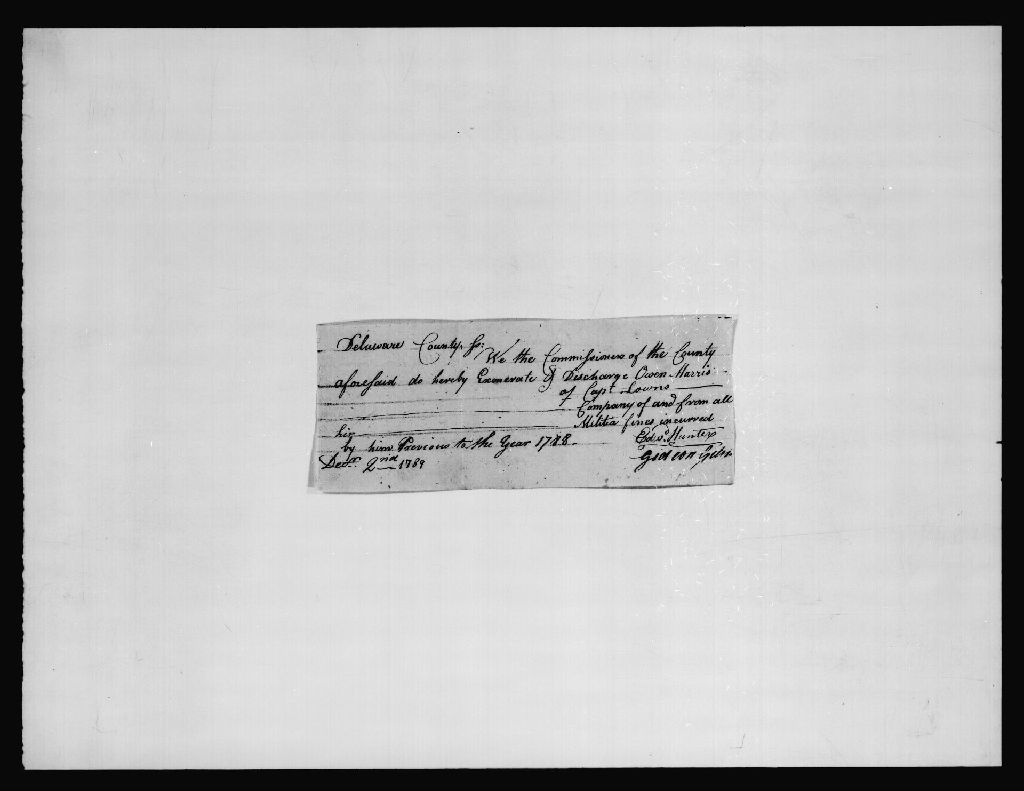 Delaware County Ss:
We the Commissioners of the County
aforesaid do hereby Exonerate & Discharge Owen Harris
of Capt. Lowns
Company of and from all
Militia fines incurred
him
by him Previous to the Year 1788.
Decr. 2nd 1789
Edwd. Hunter
Gideon